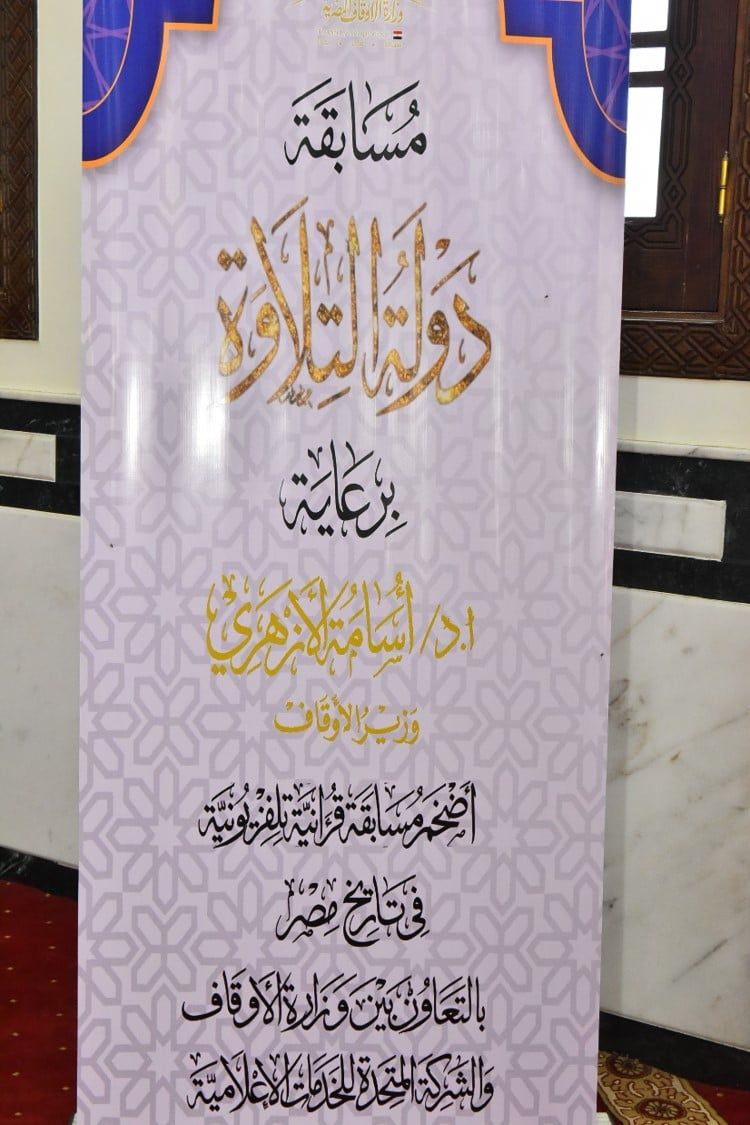 وزارة الأوقاف المصرية
مُسَابَقَة
دَولَةُ التِّلَاوَة
بِرِعَايَة
ا.د/ أُسَامَة الأَزهَرِي
وَزِيرُ الأَوقَاف
أَضْخَمُ مُسَابَقَة قُرآنِيَّة تِلِفِزيُونِيَّة
فِي تَارِيخِ مِصْر
بِالتَعَاوُن بَيْنَ وَزَارَة الأَوقَاف
وَالشَرِكَة المُتَحِدَة لِلخَدَمَات الإعْلَامِيَّة